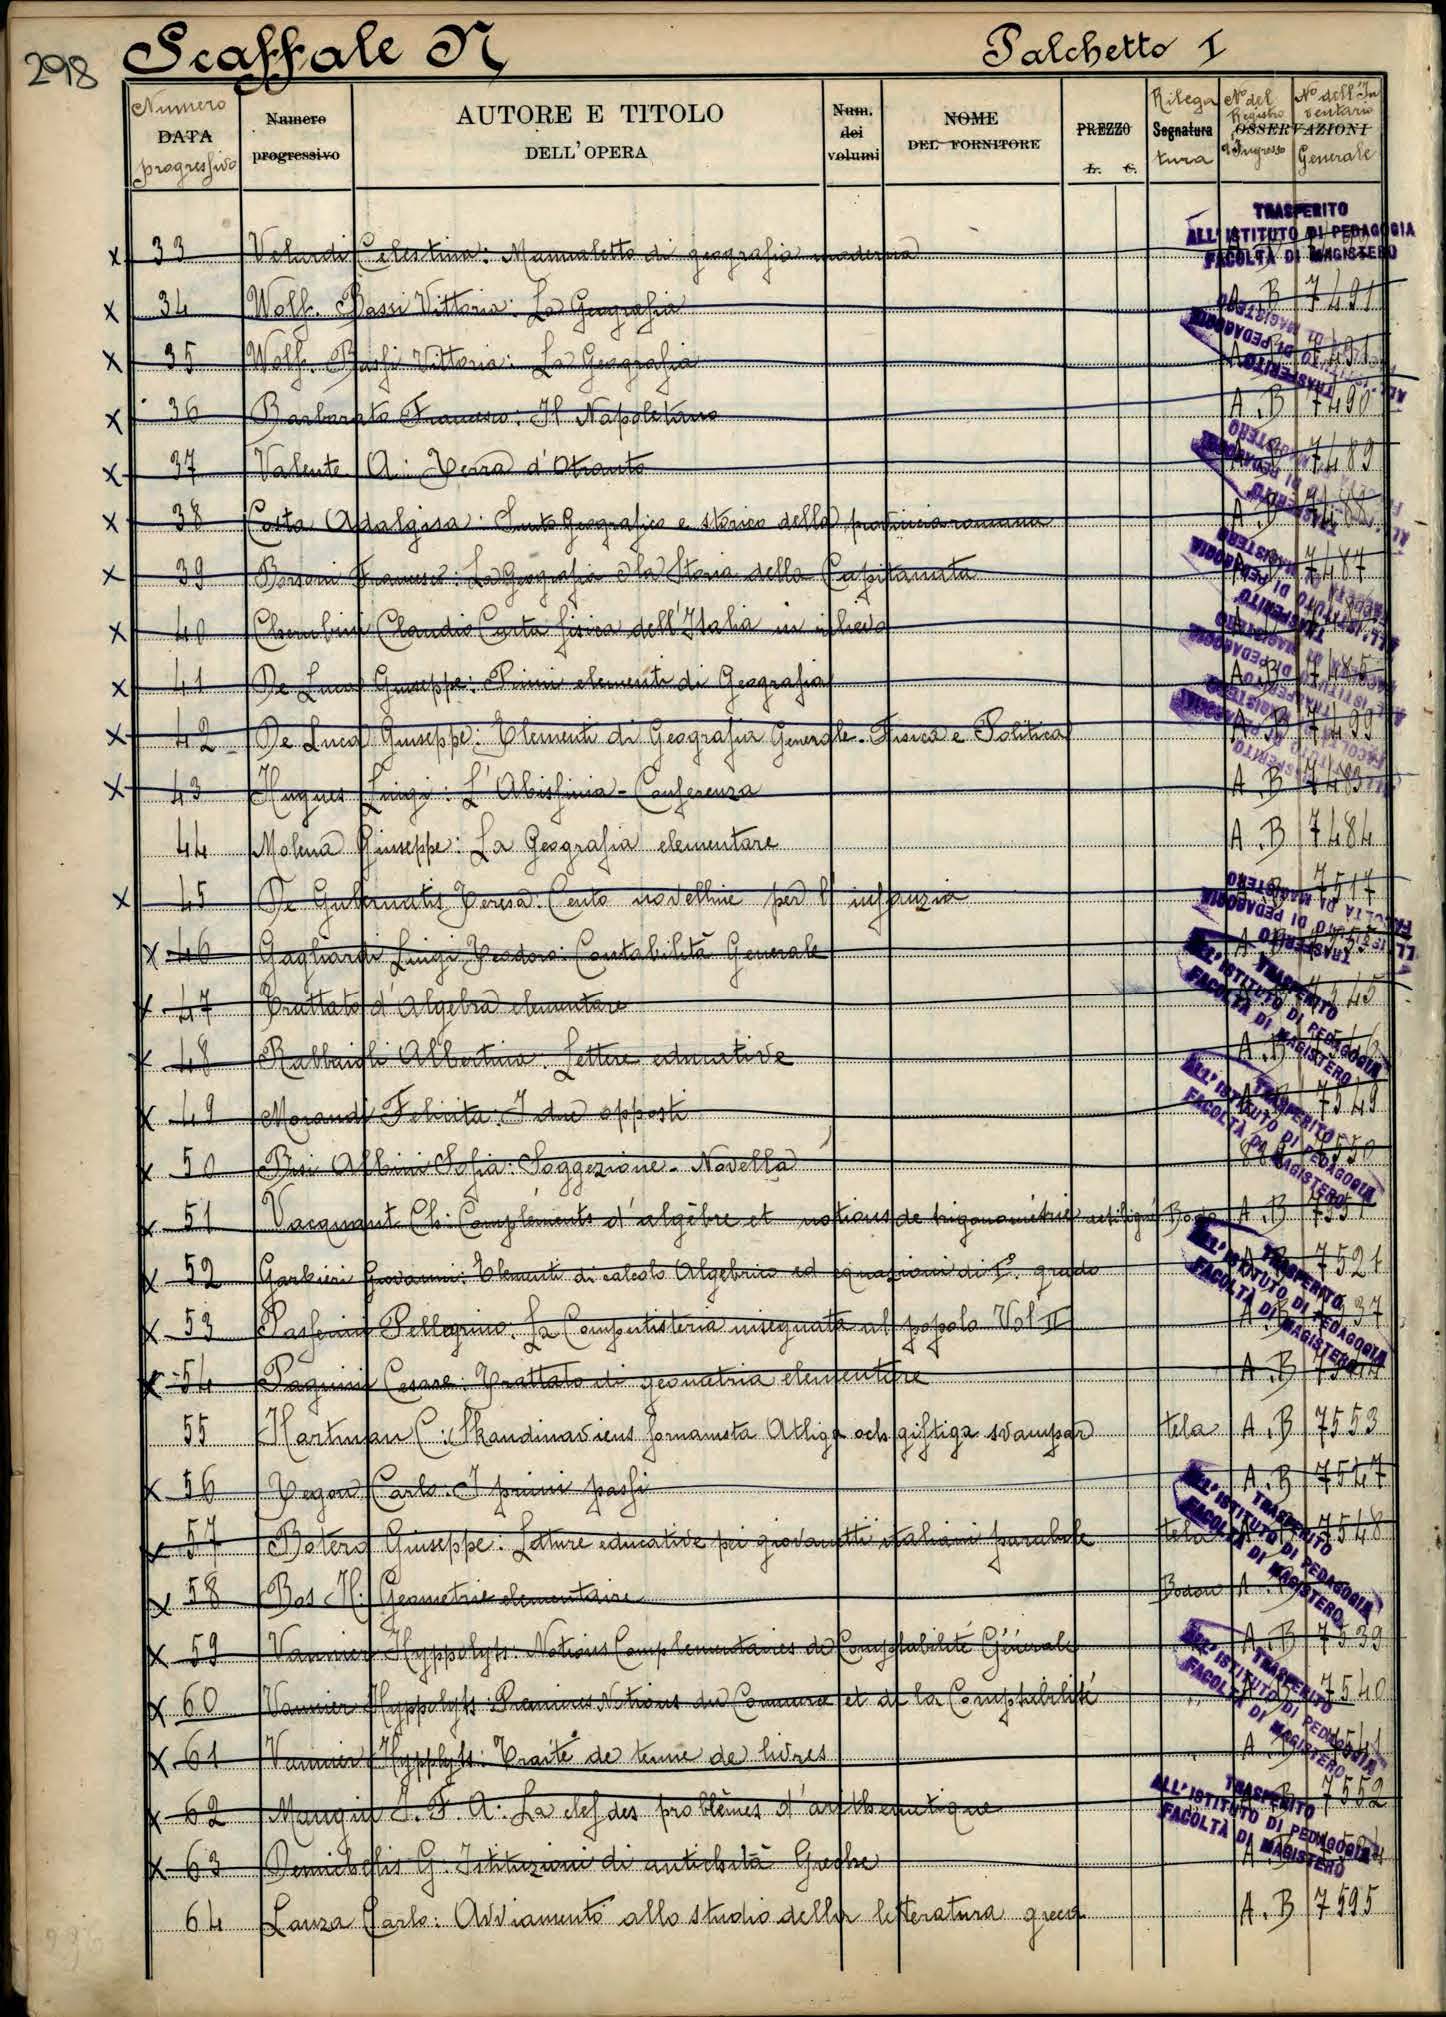 298 Scaffale N Palchetto I
Numero DATA progressivo Numero progressivo AUTORE E TITOLO DELL'OPERA Num. dei volumi NOME DEL FORNITORE PREZZO L. C. Rilega Segnatura tura No del Registro d'Ingresso OSSERVAZIONI No dell'Inventario Generale
TRASFERITO
ALL'ISTITUTO DI PEDAGOGIA
FACOLTÀ DI MAGISTERO
x 33 Velardi Celestina: Manualetto di geografia moderna
x 34 Wolf. Bassi Vittoria: La Geografia A.B 7491
x 35 Wolf. Bassi Vittoria: La Geografia
x 36 Barbarato Francesco: Il Napoletano A.B 7490
x 37 Valente A: Terra d'Otranto 7489
x 38 Costa Adalgisa: Sunto Geografico e storico della provincia romana A.B 7488
x 39 Francesco: La Geografia e la Storia della Capitanata 7487
x 40 Cherubini Claudio Carta fisica dell'Italia in rilievo
x 41 De Luca Giuseppe: Primi elementi di Geografia A.B 7485
x 42 De Luca Giuseppe: Elementi di Geografia Generale - Fisica e Politica A.B 7499
x 43 Hugues Luigi: L'Abissinia - Conferenza A.B 7483
44 Molena Giuseppe: La Geografia elementare A.B 7484
x 45 De Gubernatis Teresa: Cento novelline per l'infanzia 7517
x 46 Gagliardi Luigi Teodoro: Contabilità Generale
x 47 Trattato d'Algebra elementare
x 48 Rabbaioli Albertina: Lettere educative A.B
x 49 Morandi Felicita: I due opposti A.B 7549
x 50 Bisi Albini Sofia: Soggezione - Novella 7550
x 51 Vacquant Ch: Compléments d'algèbre et notions de trigonométrie A.B 7551
x 52 Garbieri Giovanni: Elementi di calcolo Algebrico ed equazioni di I° grado 7521
x 53 Passerini Pellegrino: La Computisteria insegnata al popolo Vol II A.B 7537
x 54 Pagnini Cesare: Trattato di geometria elementare A.B
55 Hartman C: Skandinaviens förnamsta Atliga och giftiga svampar tela A.B 7553
x 56 Carlo: I primi passi A.B 7547
x 57 Botero Giuseppe: Letture educative pei giovanetti italiani parabole tela 7548
x 58 Bos H. Geometrie elementaire
x 59 Vannier Hyppolyts: Notions Complementaires de Comptabilité Générale A.B 7539
x 60 Vannier Hyppolyts: Premieres Notions du Commerce et de la Comptabilité 7540
x 61 Vannier Hypplyts: Traité de tenue de livres A.B
x 62 Maugin J. F. A: La clef des problèmes d'arithmetique 7552
x 63 Demichelis G: Istituzioni di antichità Greche
64 Lanza Carlo: Avviamento allo studio della letteratura greca A.B 7595